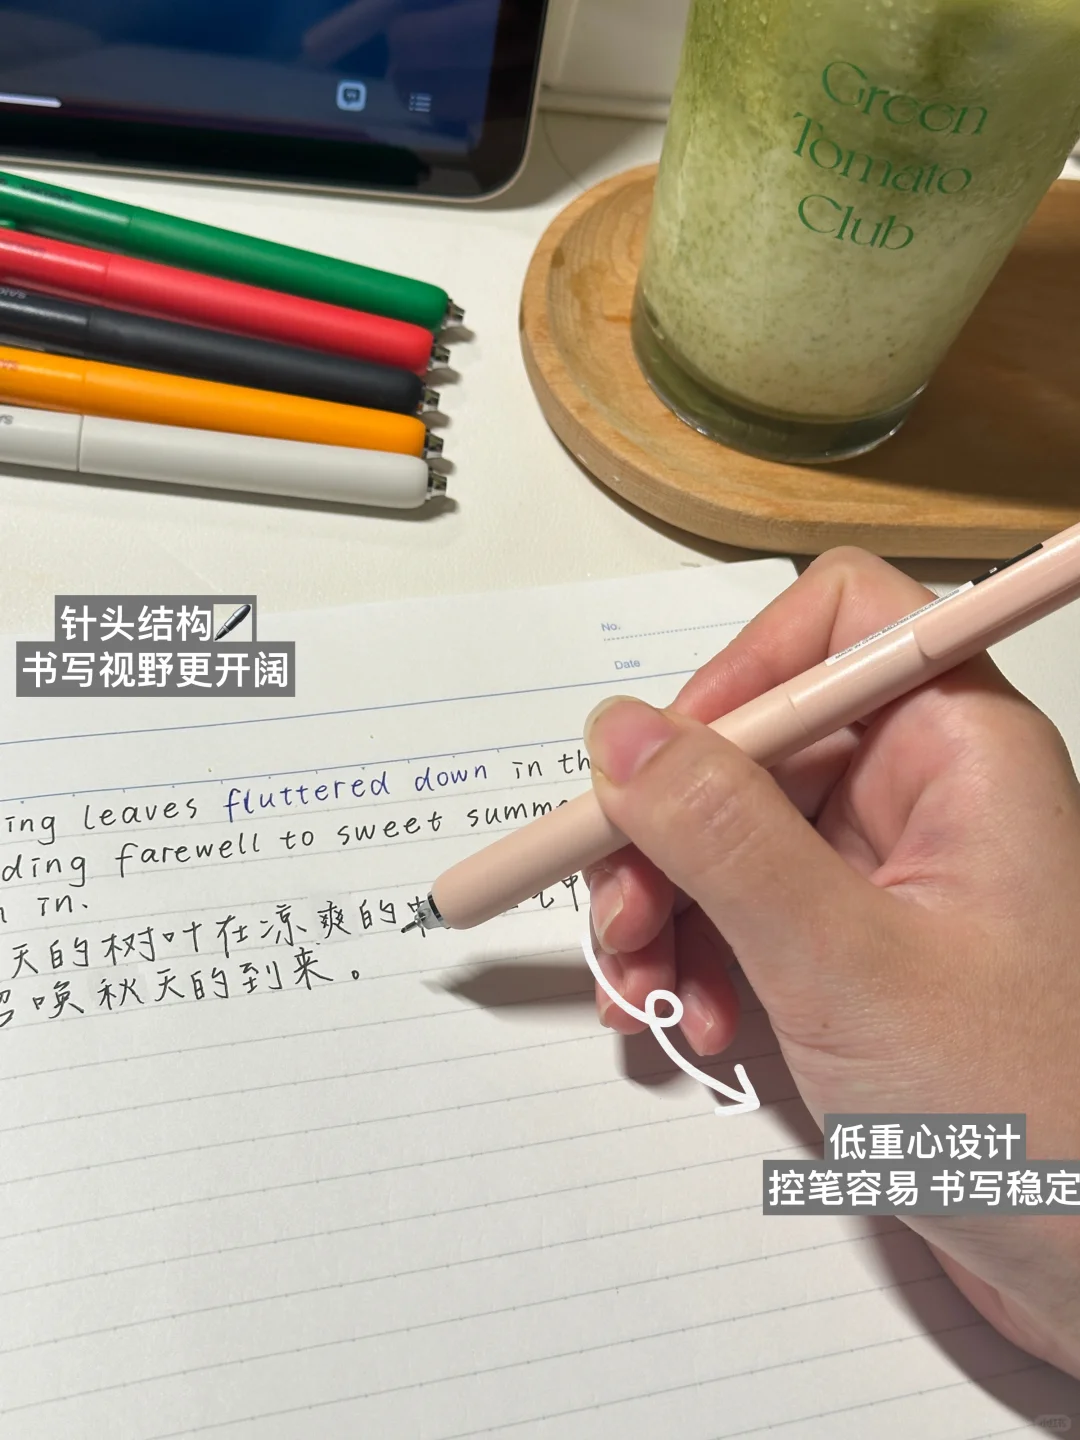 Green
Tomato
Club
针头结构
书写视野更开阔
No.
Date
ing leaves fluttered down in th
ding farewell to sweet summe
in.
天的树叶在凉爽的
召唤秋天的到来。
低重心设计
控笔容易 书写稳定